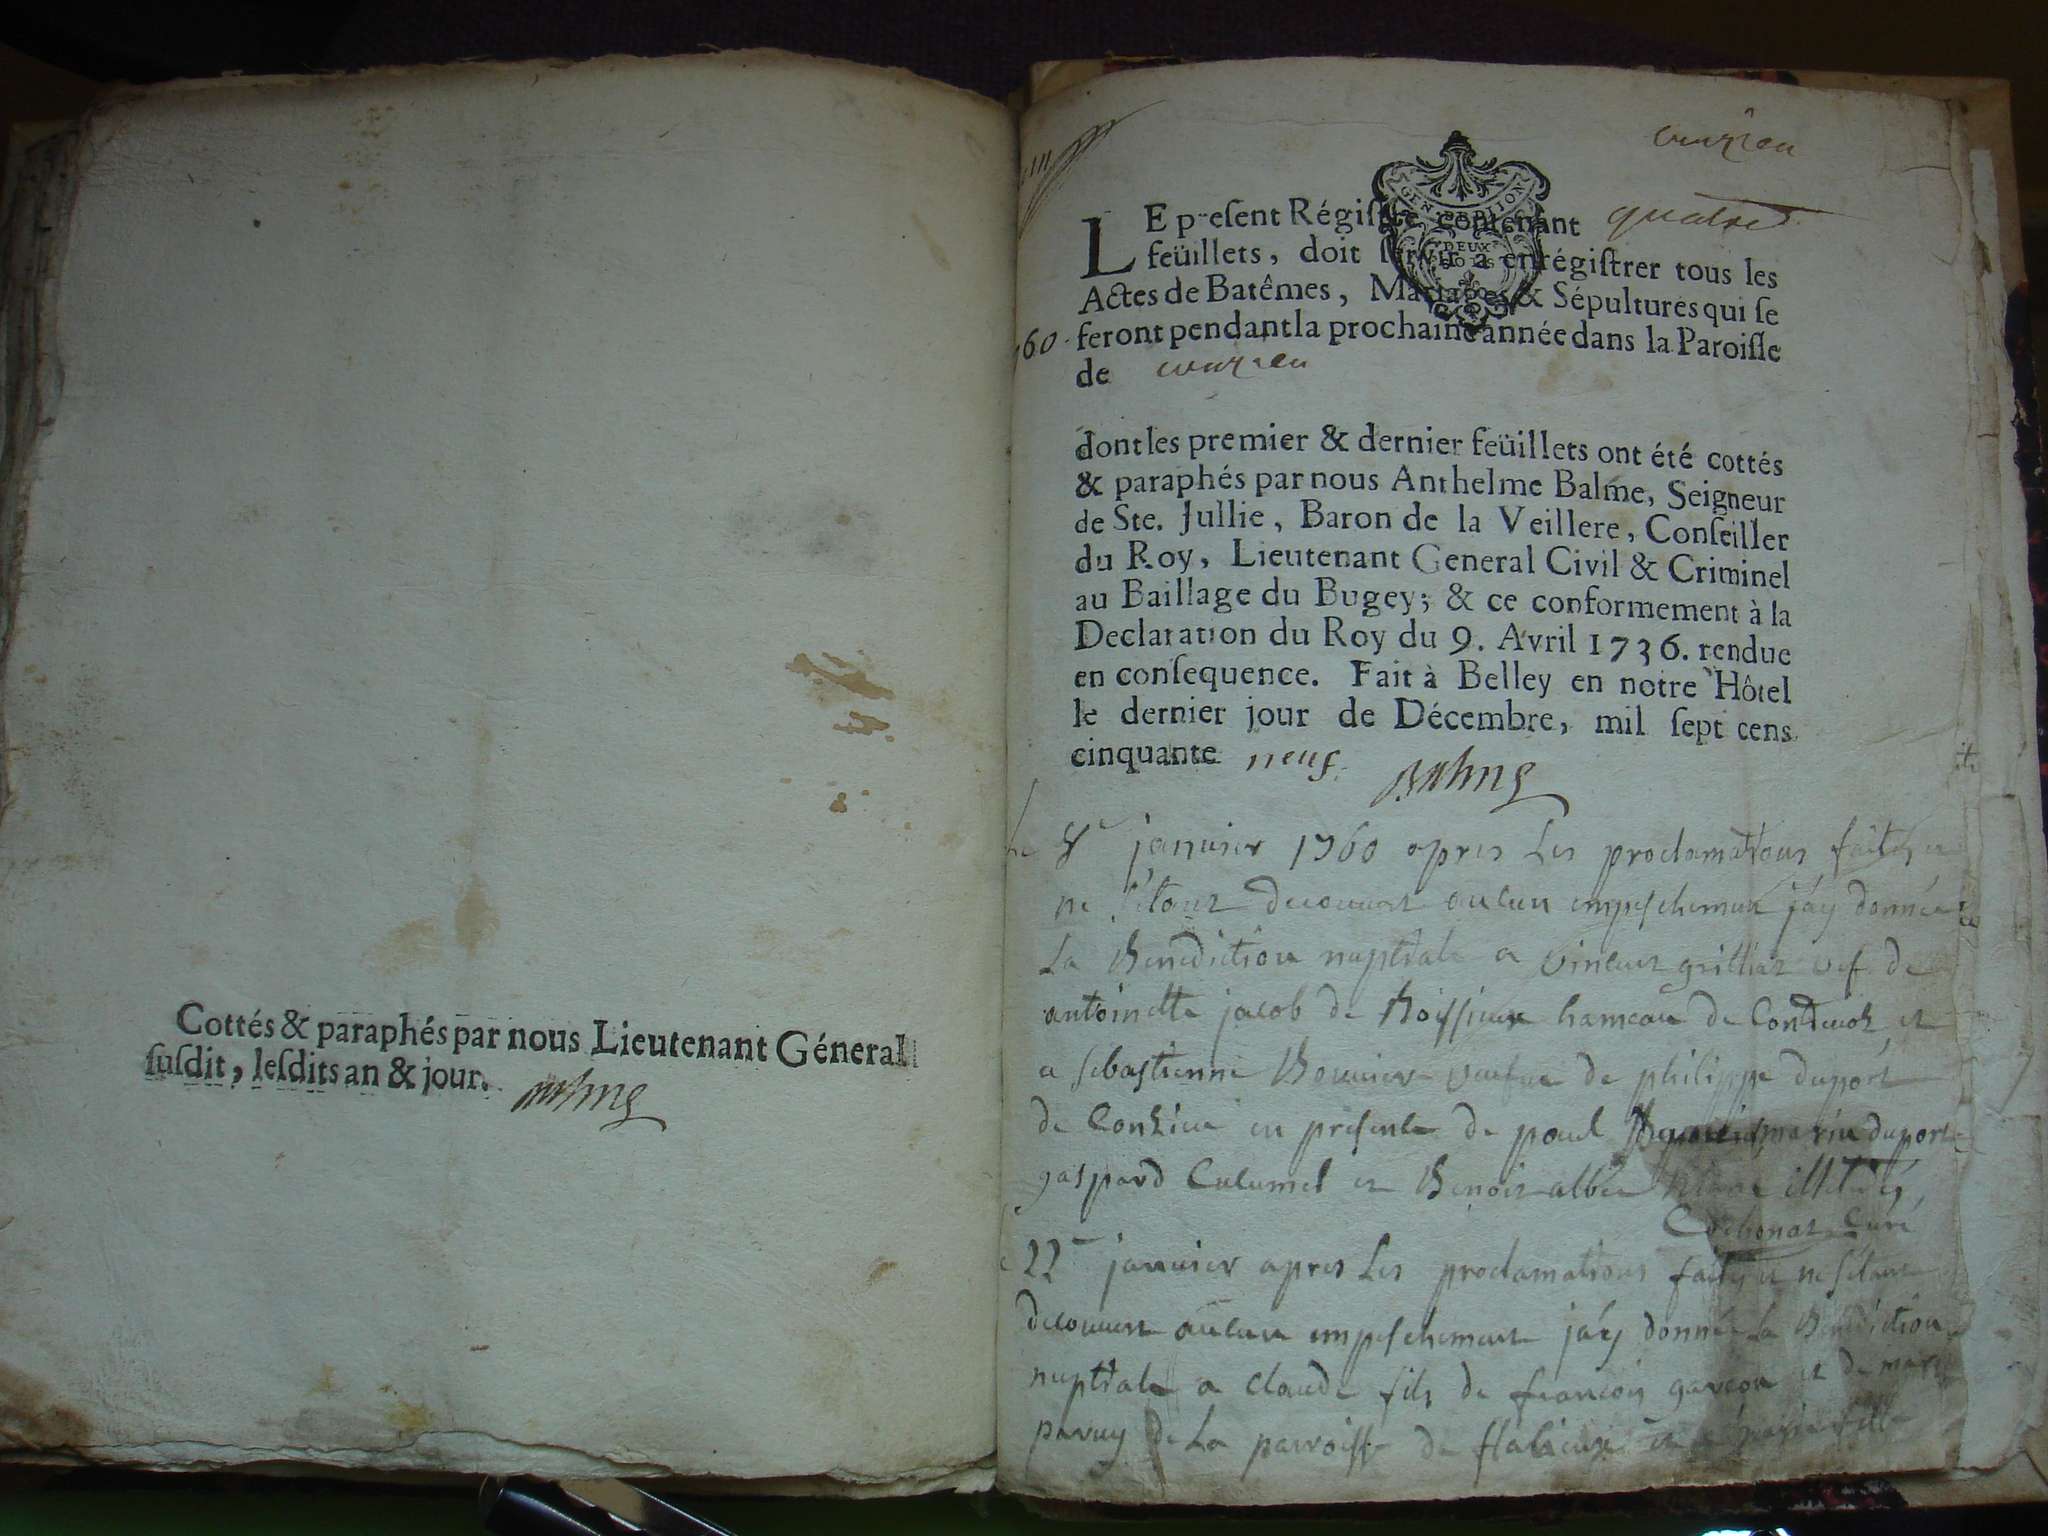 Cottés & paraphés par nous Lieutenant Géneral
susdit, lesdits an & jour. Balme
cuzieu
GEN DEUX SOLS
LE present Régistre contenant quatre
feüillets, doit servir à enrégistrer tous les
Actes de Batêmes, Mariages & Sépultures qui se
feront pendant la prochaine année dans la Paroisse
760.
de cuzieu
dont les premier & dernier feüillets ont été cottés
& paraphés par nous Anthelme Balme, Seigneur
de Ste. Jullie, Baron de la Veillere, Conseiller
du Roy, Lieutenant General Civil & Criminel
au Baillage du Bugey; & ce conformement à la
Declaration du Roy du 9. Avril 1736. rendue
en consequence. Fait à Belley en notre Hôtel
le dernier jour de Décembre, mil sept cens
cinquante neuf. Balme
Le 8e janvier 1760 apres Les proclamations faites et
ne s'etant decouvert aucun empeschement j'ay donnée
La Benediction nuptiale a vincent grilliet vef de
antoinette jacob de Boissieux hameau de et
a sebastienne Bouvier veufve de philippe duport
de Conzieu en presence de paul marin duport
gaspard Cucumel et Benoit albin illiterés
Curé
22e janvier apres Les proclamations faites et ne setant
decouvert aucun empeschement j'ay donnée La Benediction
nuptiale a claude fils de francois garcon et de marie
de La parroisse de et fille